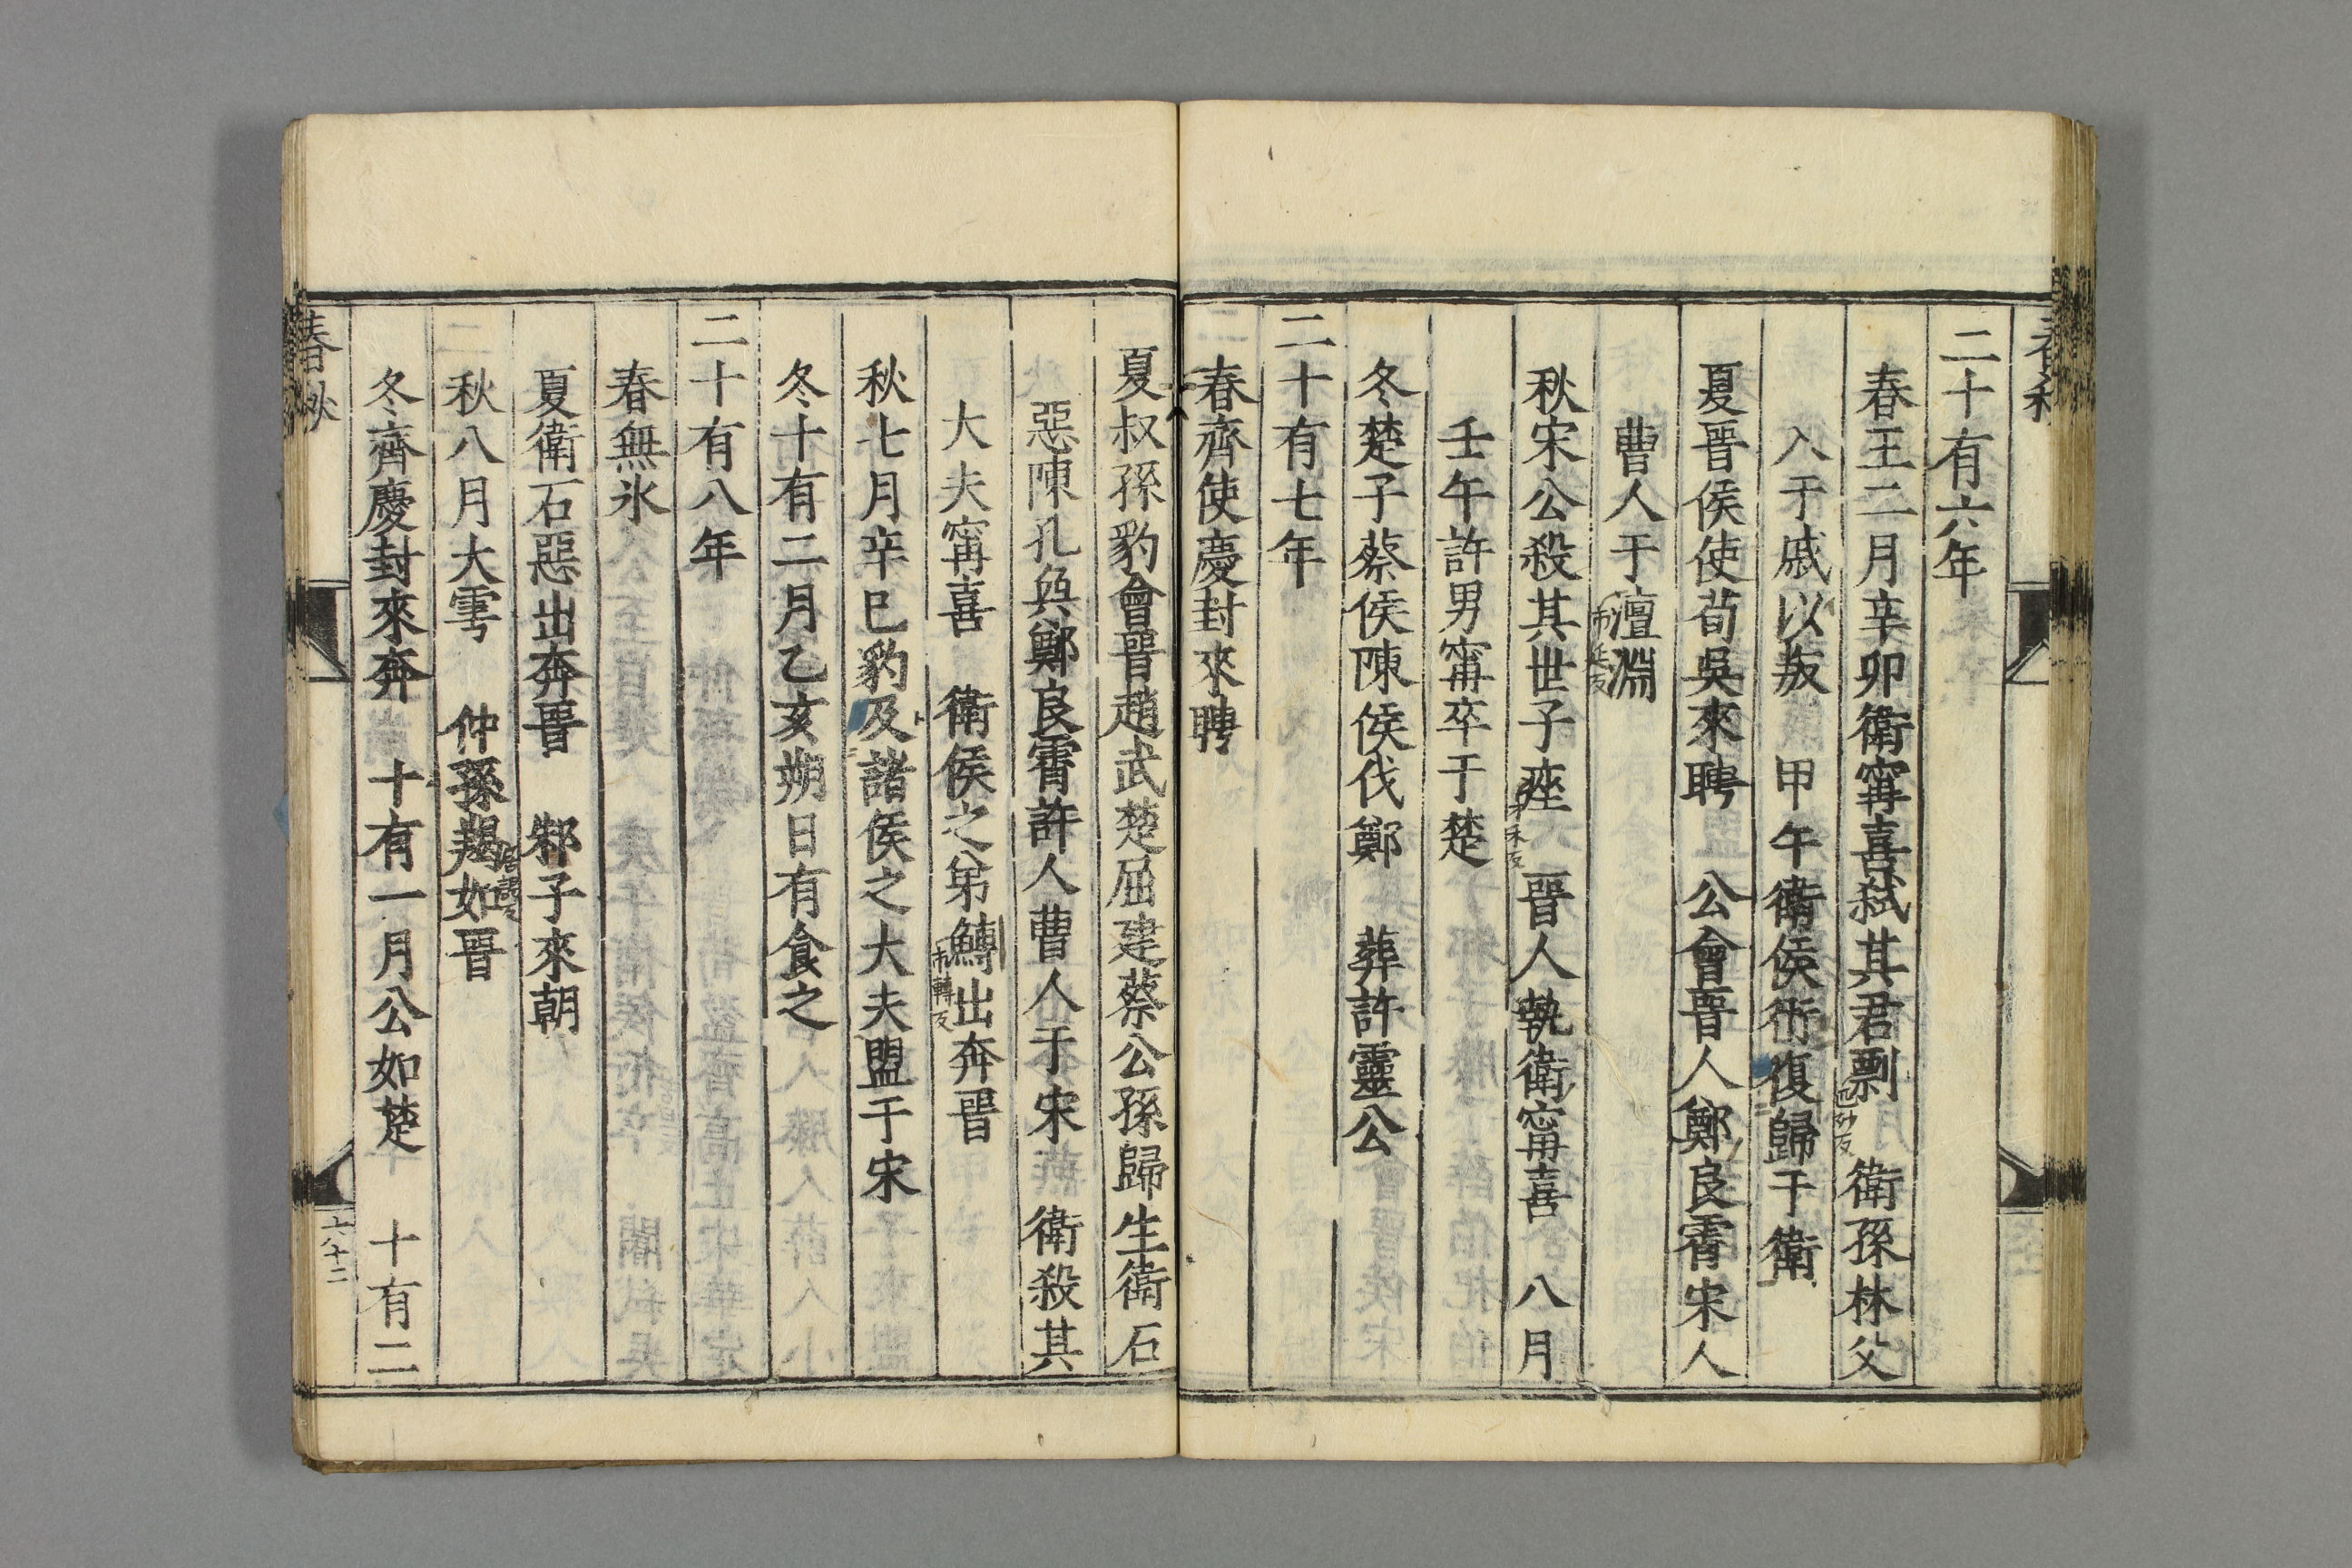 春秋
二十有六年
春王二月辛卯衛甯喜弑其君剽 匹妙反 衛孫林父
入于戚以叛 甲午衛侯衎復歸于衛
夏晉侯使荀吳來聘 公會晋人鄭良霄宋人
曹人于澶淵 市延反
秋宋公殺其世子痤 才禾反 晉人執衛甯喜 八月
壬午許男甯卒于楚
冬楚子蔡侯陳侯伐鄭 葬許靈公
二十有七年
春齊使慶封來聘
夏叔孫豹會晉趙武楚屈建蔡公孫歸生衛石
惡陳孔奐鄭良霄許人曹人于宋 衛殺其
大夫甯喜 衛侯之弟鱄 市轉反 出奔晉
秋七月辛巳豹及諸侯之大夫盟于宋
冬十有二月乙亥朔日有食之
二十有八年
春無氷
夏衛石惡出奔晋 邾子來朝
秋八月大雩 仲孫羯 居謁反 如晋
冬齊慶封來奔 十有一月公如楚 十有二
春秋
六十二